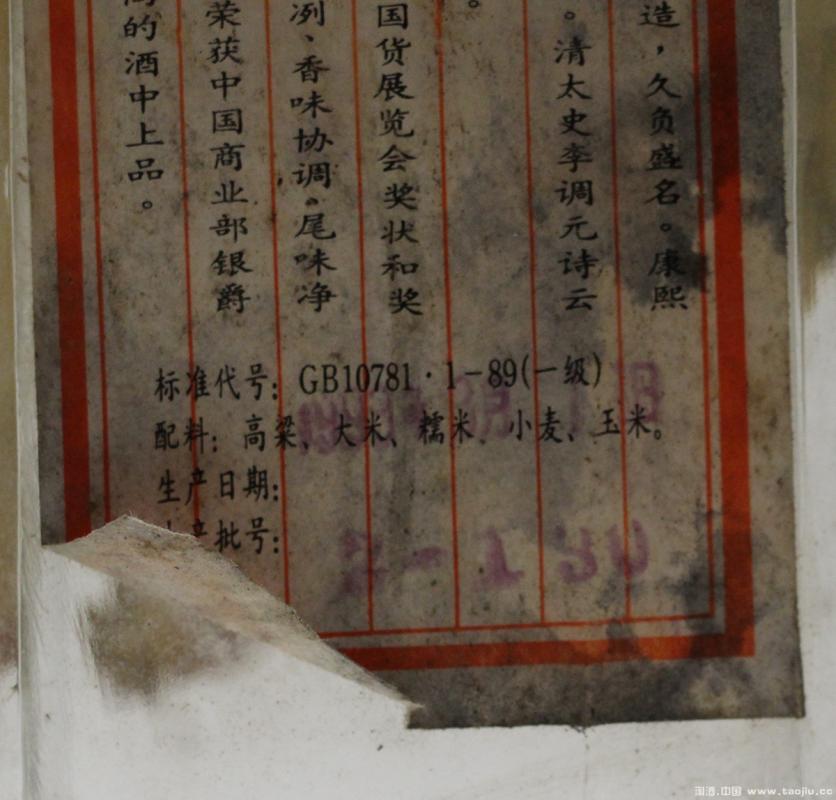 造，久负盛名。康熙
。清太史李调元诗云
。
国货展览会奖状和奖
冽、香味协调。尾味净
荣获中国商业部银爵
的酒中上品。
标准代号：GB10781·1-89(一级)
配料：高粱、大米、糯米、小麦、玉米。
生产日期：
产批号：
淘酒.中国 www.taojiu.cc